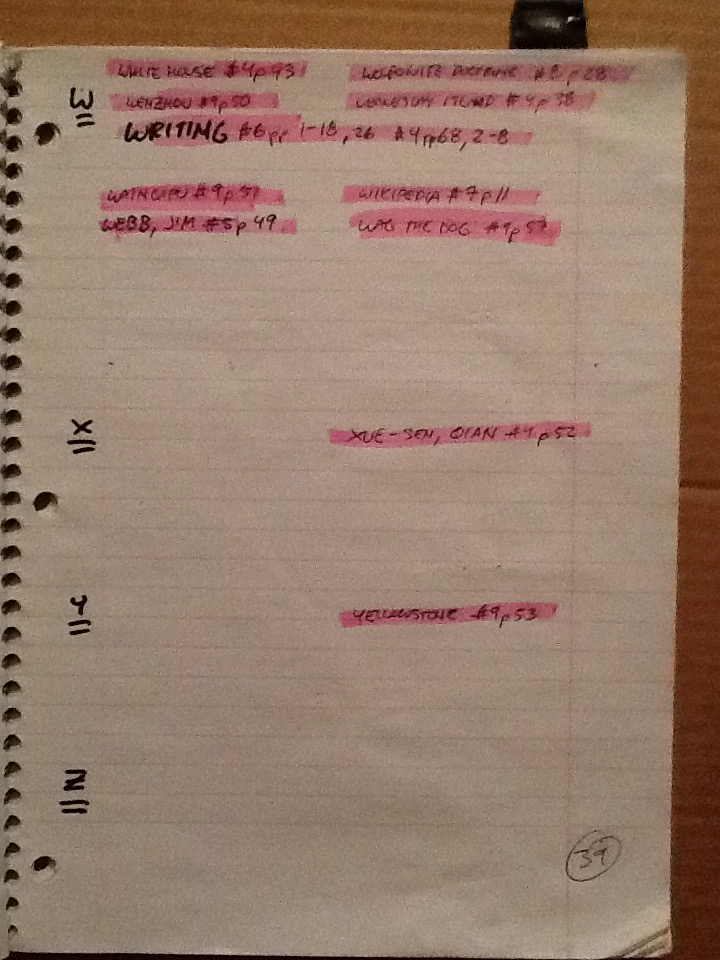 W
WHITE HOUSE #4p93 WOLFOWITZ DOCTRINE #8p28
WENZHOU #9p50 ISLAND #4p38
WRITING #6pp 1-18, 26 #4pp68, 2-8
#9p51 WIKIPEDIA #7p11
WEBB, JIM #5p49 WAG THE DOG #9p57
X
XUE-SEN, QIAN #9p52
Y
YELLOWSTONE #9p53
Z
39